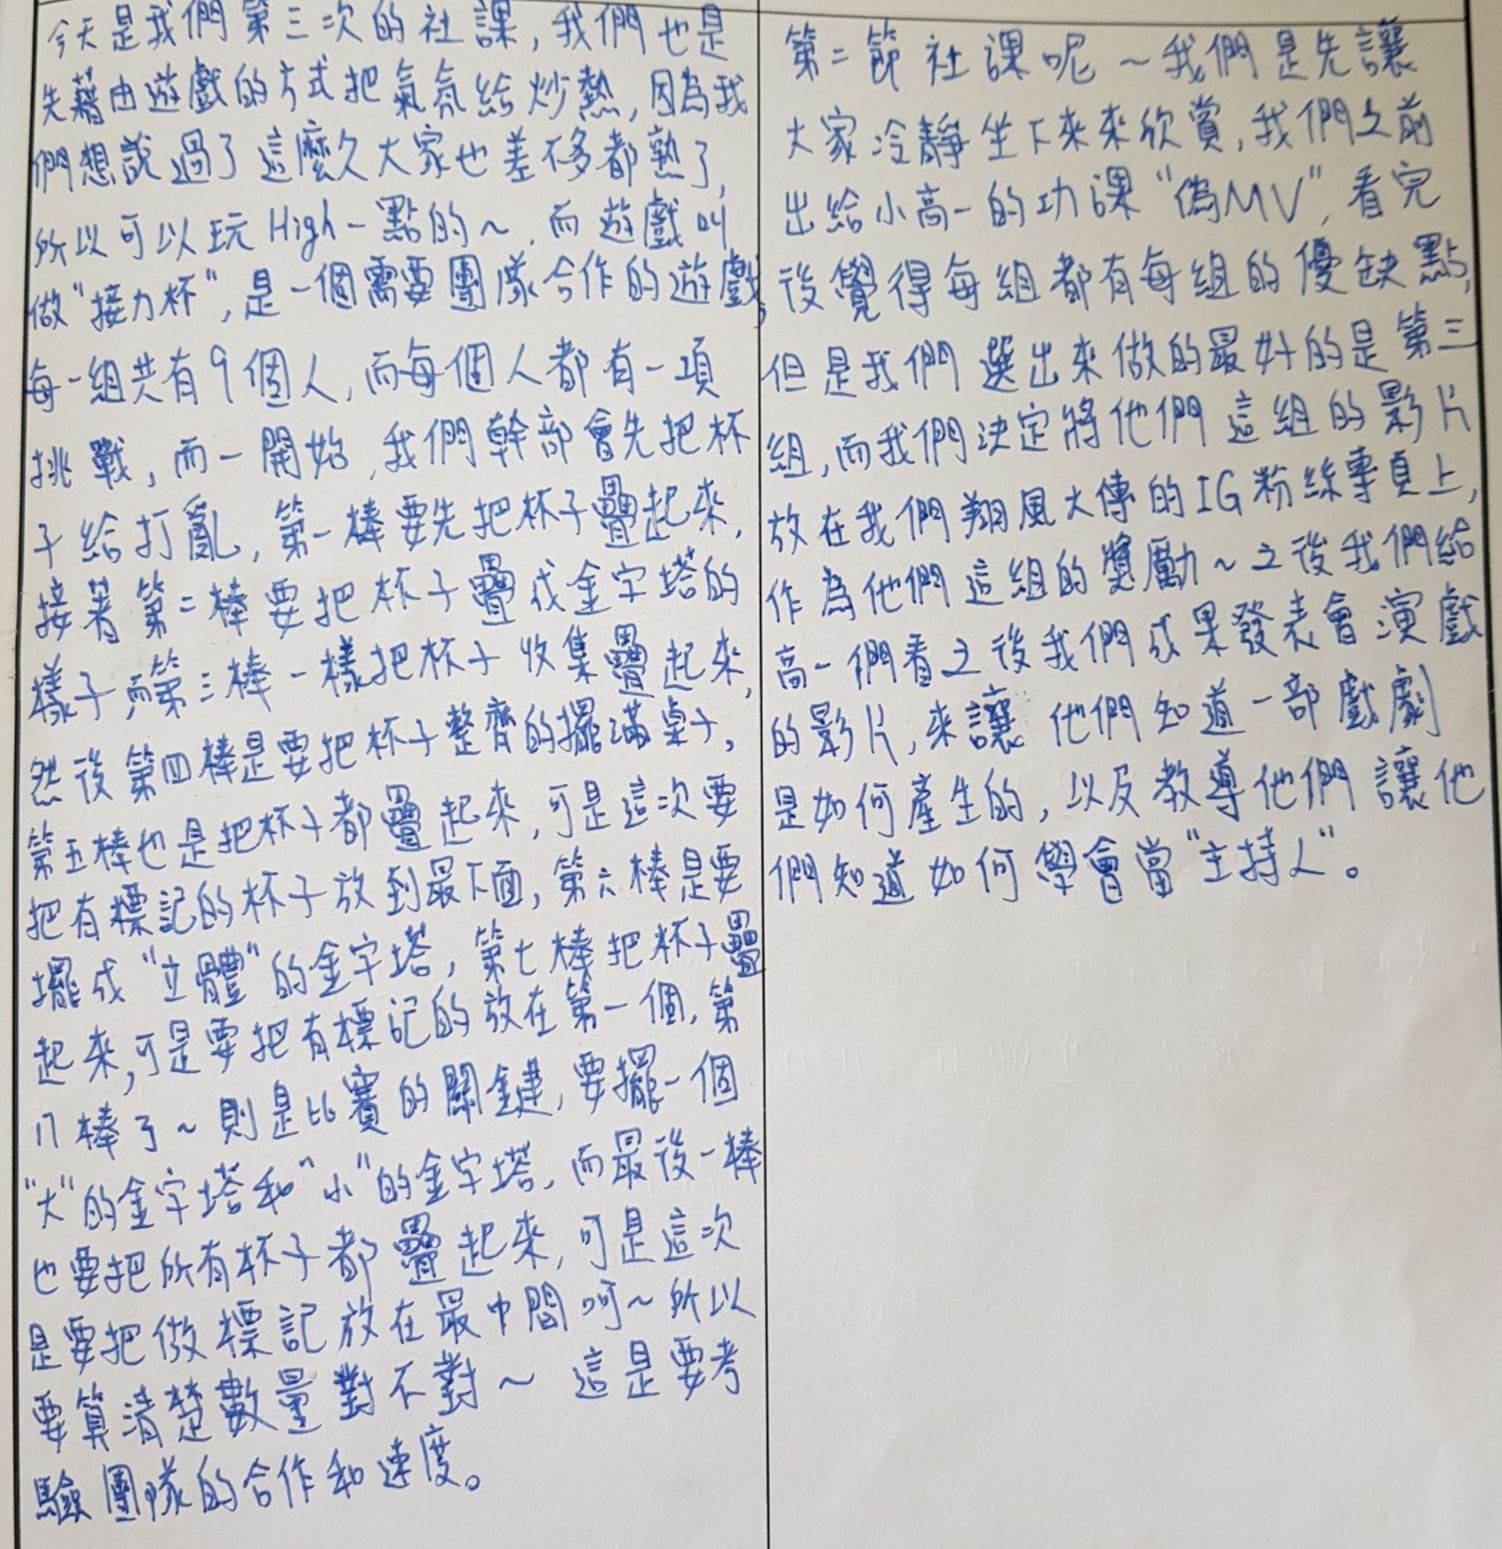 今天是我們第三次的社課,我們也是
先藉由遊戲的方式把氣氛給炒熱,因為我
們想說過了這麼久大家也差不多都熟了,
所以可以玩High一點的~,而遊戲叫
做"接力杯",是一個需要團隊合作的遊戲,
每一組共有9個人,而每個人都有一項
挑戰,而一開始,我們幹部會先把杯
子給打亂,第一棒要先把杯子疊起來,
接著第二棒要把杯子疊成金字塔的
樣子,而第三棒一樣把杯子收集疊起來,
然後第四棒是要把杯子整齊的擺滿桌子,
第五棒也是把杯子都疊起來,可是這次要
把有標記的杯子放到最下面,第六棒是要
擺成"立體"的金字塔,第七棒把杯子疊
起來,可是要把有標記的放在第一個,第
八棒了~則是比賽的關鍵,要擺一個
"大"的金字塔和"小"的金字塔,而最後一棒
也要把所有杯子都疊起來,可是這次
是要把做標記放在最中間呵~所以
要算清楚數量對不對~這是要考
驗團隊的合作和速度。
第二節社課呢~我們是先讓
大家冷靜坐下來來欣賞,我們之前
出給小高一的功課"偽MV",看完
後覺得每組都有每組的優缺點,
但是我們選出來做的最好的是第三
組,而我們決定將他們這組的影片
放在我們翔風大傳的IG粉絲專頁上,
作為他們這組的獎勵~之後我們給
高一們看之後我們成果發表會演戲
的影片,來讓他們知道一部戲劇
是如何產生的,以及教導他們讓他
們知道如何學會當"主持人"。